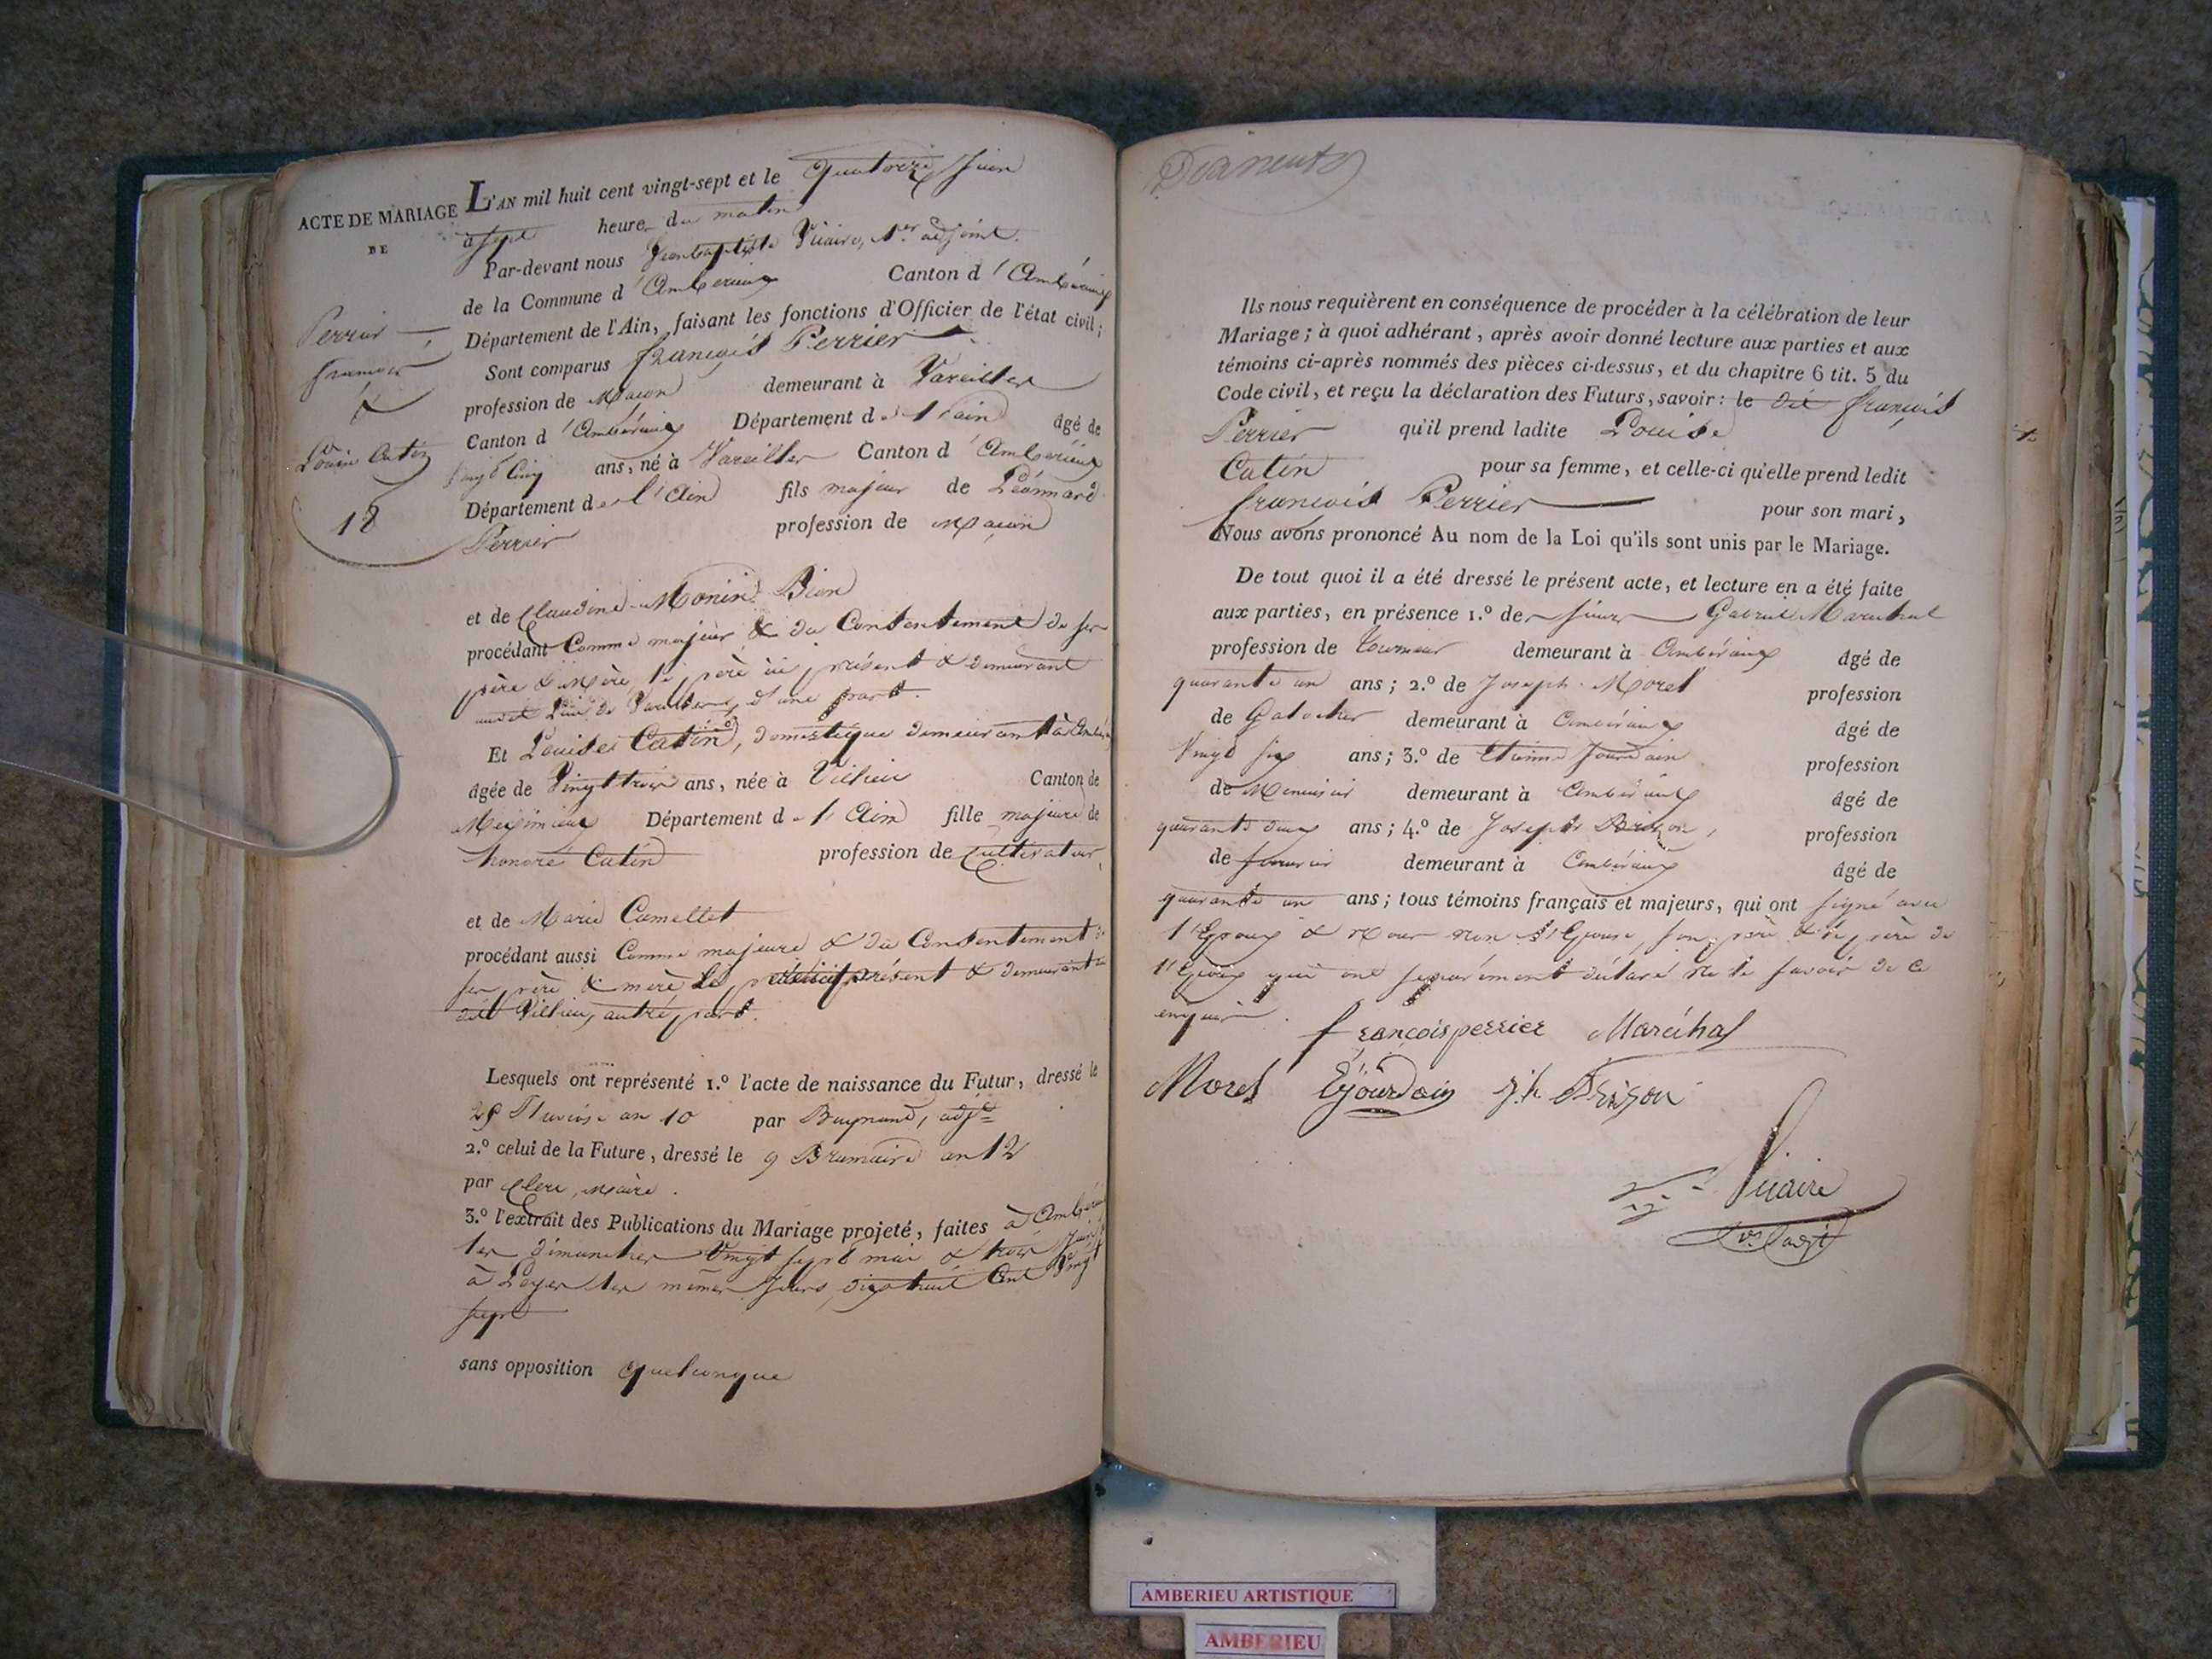 ACTE DE MARIAGE
DE
Perrier
François
&
Louise Catin
18
L'AN mil huit cent vingt-sept et le quatorze Juin
à sept heures du matin
Par-devant nous Jean baptiste Vicaire, 1.er adjoint
de la Commune d'Amberieux Canton d'Ambérieux
Département de l'Ain, faisant les fonctions d'Officier de l'état civil;
Sont comparus françois Perrier
profession de Maçon demeurant à Vareilles
Canton d'Ambérieux Département de l'ain âgé de
vingt cinq ans, né à Vareilles Canton d'Ambérieux
Département de l'Ain fils majeur de Léonnard
Perrier profession de Maçon
et de Claudine Monin Bien
procédant Comme majeur & du Consentement de ses
père & mère, le père ici présent & demeurant
de Vareilles, d'une part.
Et Louise Catin, domestique demeurant à
âgée de Vingt trois ans, née à Villieu Canton de
Meximieux Département de l'Ain fille majeure de
honoré Catin profession de Cultivateur,
et de Marie Camellet
procédant aussi Comme majeure & du Consentement de
ses père & mère le présent & demeurant au
dit Villieu, autre part.
Lesquels ont représenté 1.º l'acte de naissance du Futur, dressé le
Pluviose an 10 par adj.t
2.º celui de la Future, dressé le 9 Brumaire an 12
par Clerc, Maire.
3.º l'extrait des Publications du Mariage projeté, faites à
les dimanches Vingt sept mai & trois Juin &
à Leyer les mêmes Jours, dix huit Cent Vingt
sept
sans opposition quelconque
Ils nous requièrent en conséquence de procéder à la célébration de leur
Mariage; à quoi adhérant, après avoir donné lecture aux parties et aux
témoins ci-après nommés des pièces ci-dessus, et du chapitre 6 tit. 5 du
Code civil, et reçu la déclaration des Futurs, savoir: le dit françois
Perrier qu'il prend ladite Louise
Catin pour sa femme, et celle-ci qu'elle prend ledit
françois Perrier pour son mari,
Nous avons prononcé Au nom de la Loi qu'ils sont unis par le Mariage.
De tout quoi il a été dressé le présent acte, et lecture en a été faite
aux parties, en présence 1.º de sieurs Gabriel Maréchal
profession de tourneur demeurant à Ambérieux âgé de
quarante un ans; 2.º de Joseph Morel profession
de Galocher demeurant à Ambérieux âgé de
Vingt six ans; 3.º de Etienne Jourdain profession
de Menuisier demeurant à Ambérieux âgé de
quarante deux ans; 4.º de Joseph Brizon, profession
de demeurant à Ambérieux âgé de
quarante un ans; tous témoins français et majeurs, qui ont signé avec
l'Epoux & Nous non l'Epouse son père & le père de
l'Epoux qui ont separément déclaré ne le savoir de ce
enquis.
françois perrier Maréchal
Morel Ejourdain j.h Brizon
Vicaire
AMBERIEU ARTISTIQUE
AMBERIEU